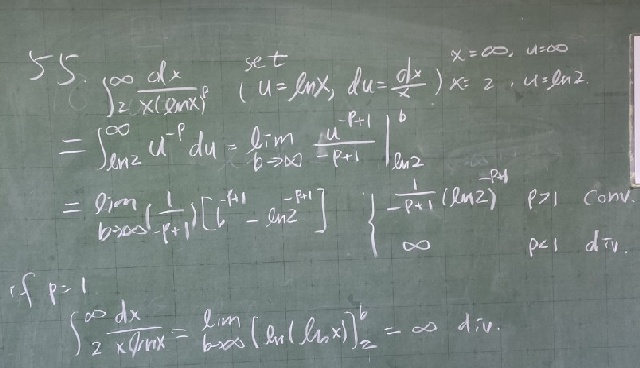 55. ∫₂^∞ dx / x(lnx)^p set (u = lnx, du = dx/x) x = ∞, u = ∞
x = 2, u = ln2
= ∫_{ln2}^∞ u^{-p} du = lim_{b→∞} u^{-p+1} / -p+1 |_{ln2}^b
= lim_{b→∞} (1 / -p+1) [b^{-p+1} - ln2^{-p+1}] { 1 / -p+1 (ln2)^{-p+1} p>1 Conv.
∞ p<1 div.
if p = 1
∫₂^∞ dx / x lnx = lim_{b→∞} [ln(lnx)]₂^b = ∞ div.